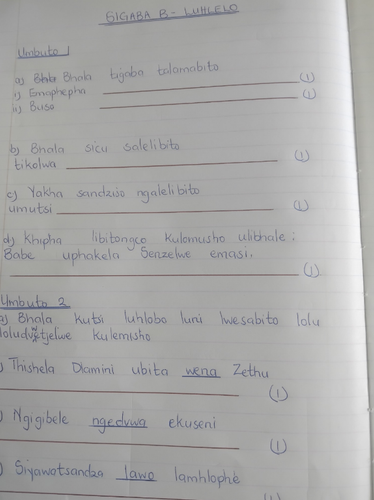 SIGABA B - LUHLELO
Umbuto 1
a) Bhala tigaba talamabito
i) Emaphepha (1)
ii) Buso (1)
b) Bhala sicu salelibito
tikolwa (1)
c) Yakha sandziso ngalelibito
umutsi (1)
d) Khipha libitongco kulomusho ulibhale:
Babe uphakela Senzelwe emasi.
(1)
Umbuto 2
a) Bhala kutsi luhlobo luni lwesabito lolu
loludvwetjelwe kulemisho
) Thishela Dlamini ubita wena Zethu
(1)
) Ngigibele ngedvwa ekuseni
(1)
) Siyawatsandza lawo lamhlophe